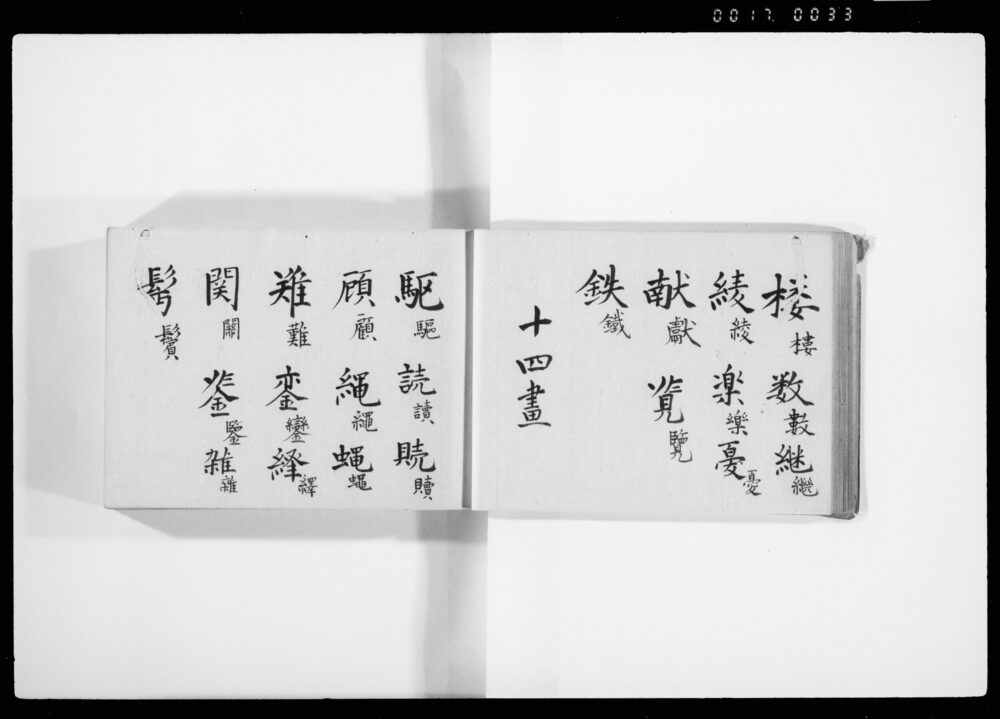 0017 0033
楼樓 数數 継繼
綾綾 楽樂 憂憂
献獻 覧覽
鉄鐵
十四畫
駆驅 読讀 贖
顾顧 縄繩 蝿蠅
难難 銮鑾 繹
関關 鑒 雑雜
鬂鬢